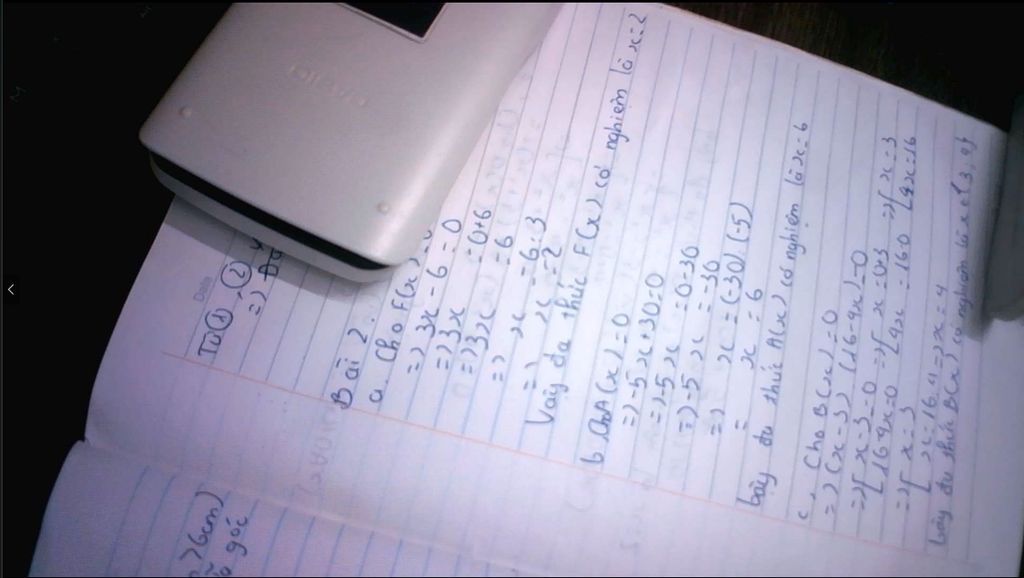 CASIO
Date
Từ ①, ②
=>
Bài 2.
a. Cho F(x) = 0
=> 3x - 6 = 0
=> 3x = 0+6
=> 3x = 6
=> x = 6:3
=> x = 2
Vậy đa thức F(x) có nghiệm là x=2
b. Cho A(x) = 0
=> -5x+30=0
=> -5x = 0-30
=> -5x = -30
=> x = (-30):(-5)
= x = 6
Vậy đa thức A(x) có nghiệm là x=6
c, Cho B(x) = 0
=> (x-3)(16-4x)=0
=> [ x-3=0 => [ x = 0+3 => [ x = 3
[ 16-4x=0 [ 4x = 16-0 [ 4x=16
=> [ x = 3
[ x = 16:4 => x = 4
Vậy đa thức B(x) có nghiệm là x={3, 4}
6cm)
góc